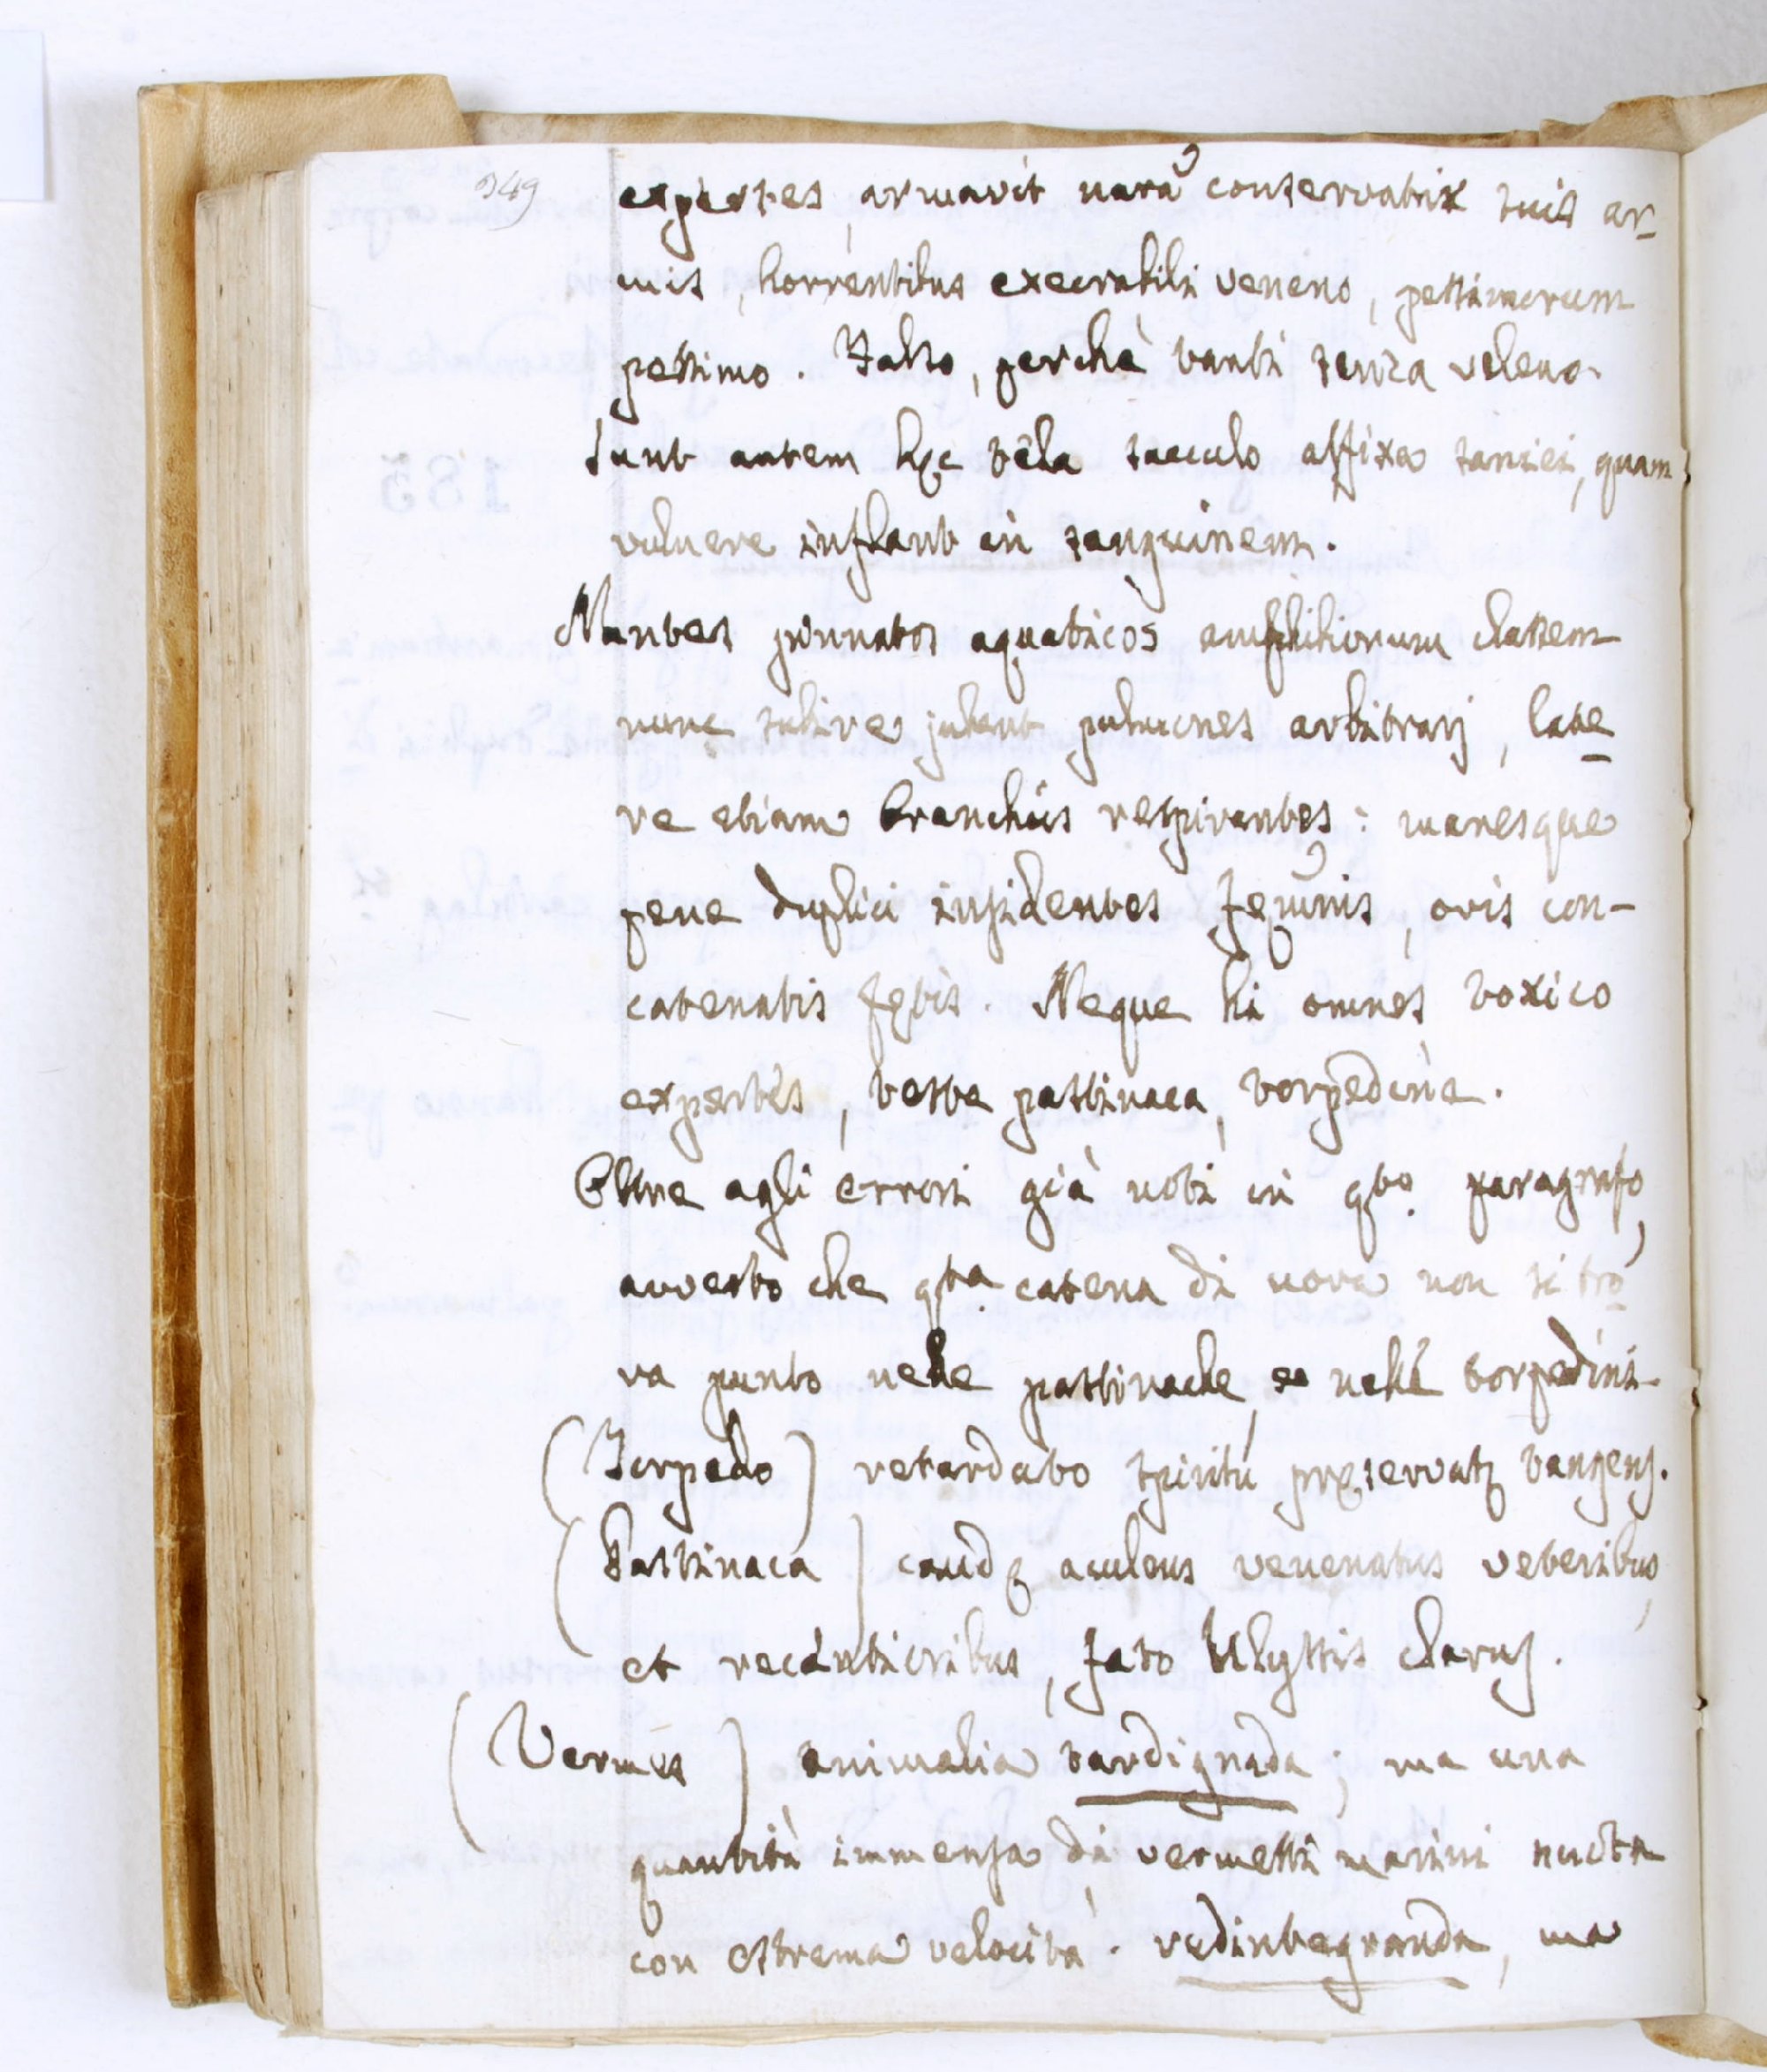 349
expertes, armavit narã conservatrix suis ar-
mis, horrentibus execrabili veneno, pessimorum
pessimo. Falso, perchè tanti senza veleno.
Sunt autem hęc tela sacculo affixa saniei, quam
vulnere inflant in sanguinem.
Nantes pinnatos aquaticos amphibiorum classem
nunc subire jubent pulmones arbitrarj, late-
re etiam branchiis respirantes: maresque
pene duplici insidentes fęminis, ovis con-
catenatis fętis. Neque hi omnes toxico
expertes, teste pastinaca, torpedine.
Oltre agli errori già noti in qto paragrafo,
avverto che qta catena di uova non si tro-
va punto nelle pastinache, e nelle torpedini.
(Torpedo) retardato spiritu pręservatę tangens.
(Pastinaca) caudę aculeus venenatus veteribus,
et recantioribus, fato Ulyssis clarus.
(Vermes) animalia tardigrada; ma una
quantità immensa di vermetti marini nuota
con estrema velocità. redintegranda, ma